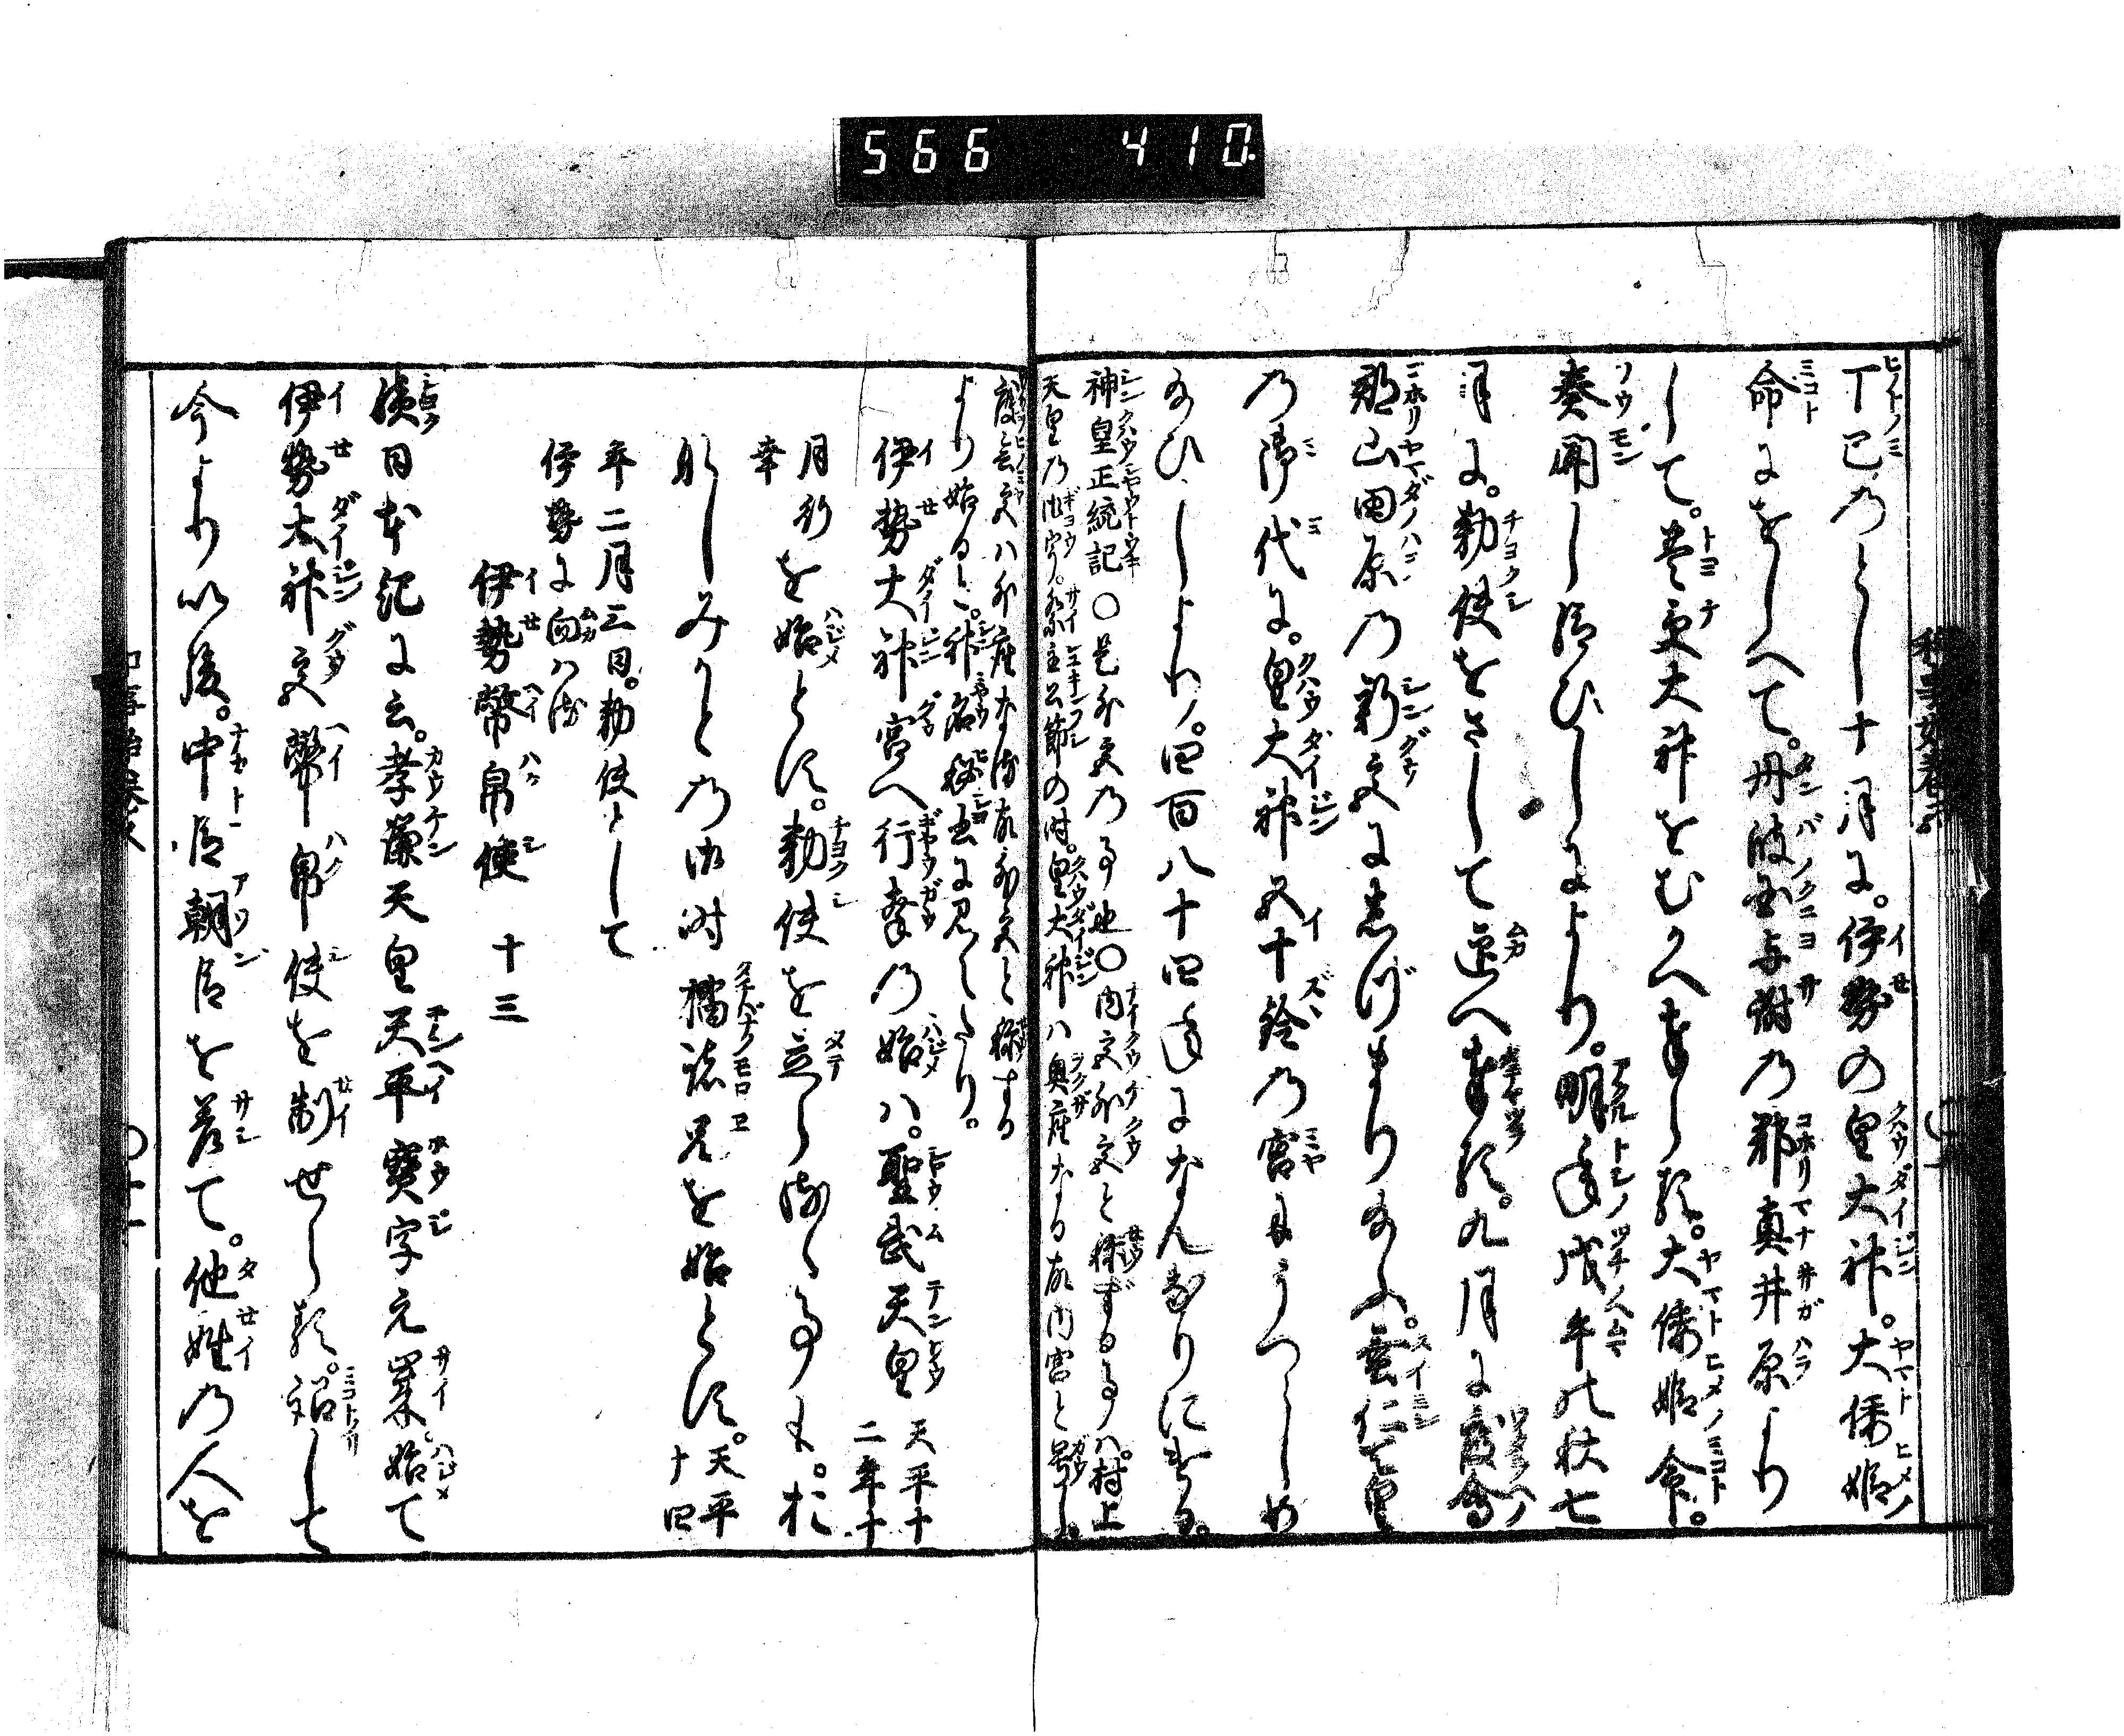 566 410
丁巳のとし十月に。伊勢の皇大神。大倭姫
命にをしへて。丹波国与謝の郡真井原より
して。豊受大神をむかへ奉らる。大倭姫命。
奏聞し給ひしによりて。明年戊午の秋七
月に。勅使をさして迎へ奉る。九月に度會
郡山田原の新宮にしづまり給ふ。垂仁天皇
の御代に。皇大神五十鈴の宮にうつらしめ
給ひしより。四百八十四年になんなりにける。
神皇正統記 〇是外宮の事也〇内宮外宮と称ずる事ハ。村上
天皇の御宇。祭主公節の時。皇大神ハ奥座なる故内宮と号し。
度会宮ハ外座なる故外宮と称する
より始ると。神名秘書に見へたり。
伊勢大神宮へ行幸の始ハ。聖武天皇 天平十二年十
月行幸
を始とす。勅使を立らるゝ事も。おな
しみかどの御時橘諸兄を始とす。天平十四
年二月三日。勅使として
伊勢に向ハる
伊勢幣帛使 十三
続日本紀に云。孝謙天皇天平寶字元
年。始て
伊勢大神宮幣帛使を制せらる。詔して
今より以後。中臣朝臣を差て。他姓の人を